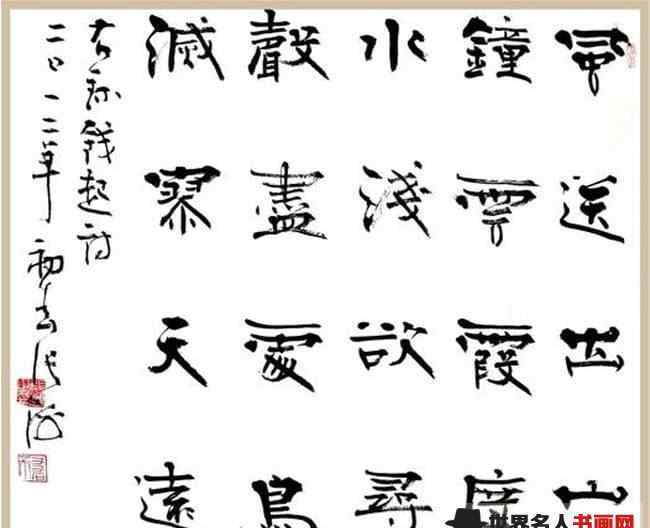 風送出山
鐘雲霞度
水淺欲尋
聲盡處鳥
滅寥天遠
右錄錢起詩
二〇一二年初春
世界名人书画网